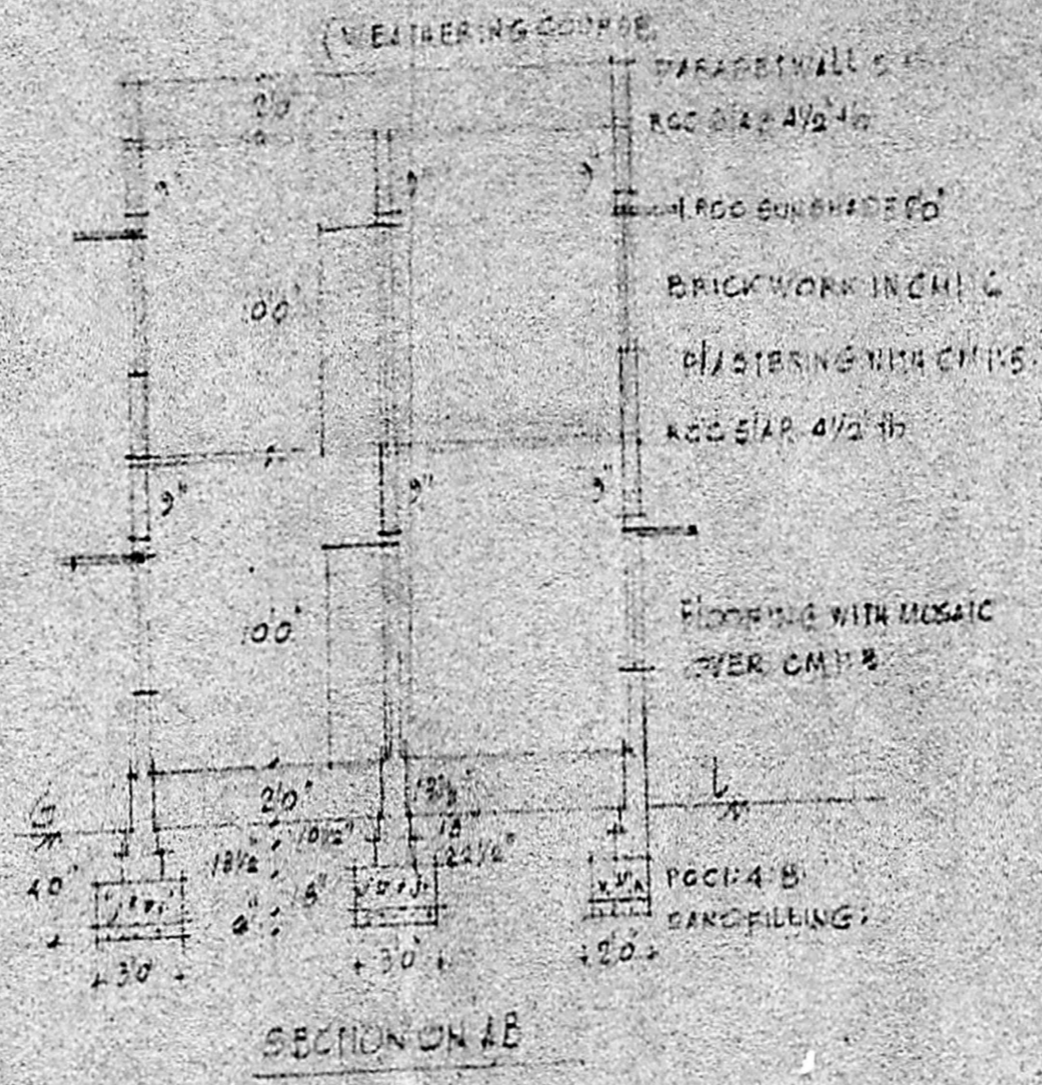 (WEATHERING COURSE
PARAPET WALL
2'0"
RCC SLAB 4½" th
9"
9"
9"
RCC SUNSHADE 2'0"
10'0"
BRICKWORK IN CM 1:6
PLASTERING WITH CM 1:5
RCC SLAB 4½" th
9"
9"
9"
10'0"
FLOORING WITH MOSAIC
OVER CM 1:8
G
L
2'0"
13½"
18"
10½"
22½"
18½"
4'0"
PCC 1:4:8
SAND FILLING
3'0"
3'0"
2'0"
SECTION ON AB